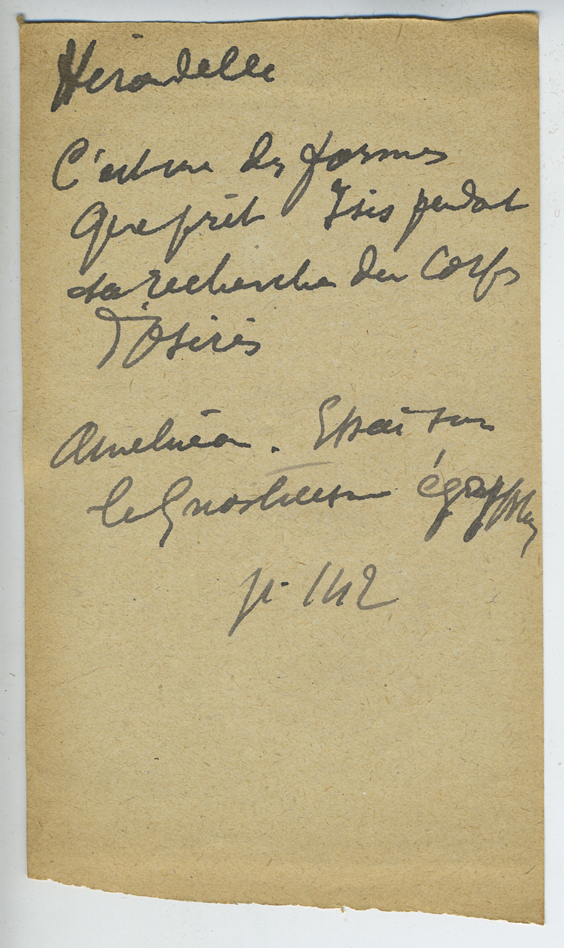 Hirondelle
C'est une des formes
que prit Isis pendant
sa recherche du corps
d'Osiris
Amelineau. Essai sur
le Gnosticisme égyptien
p. 142